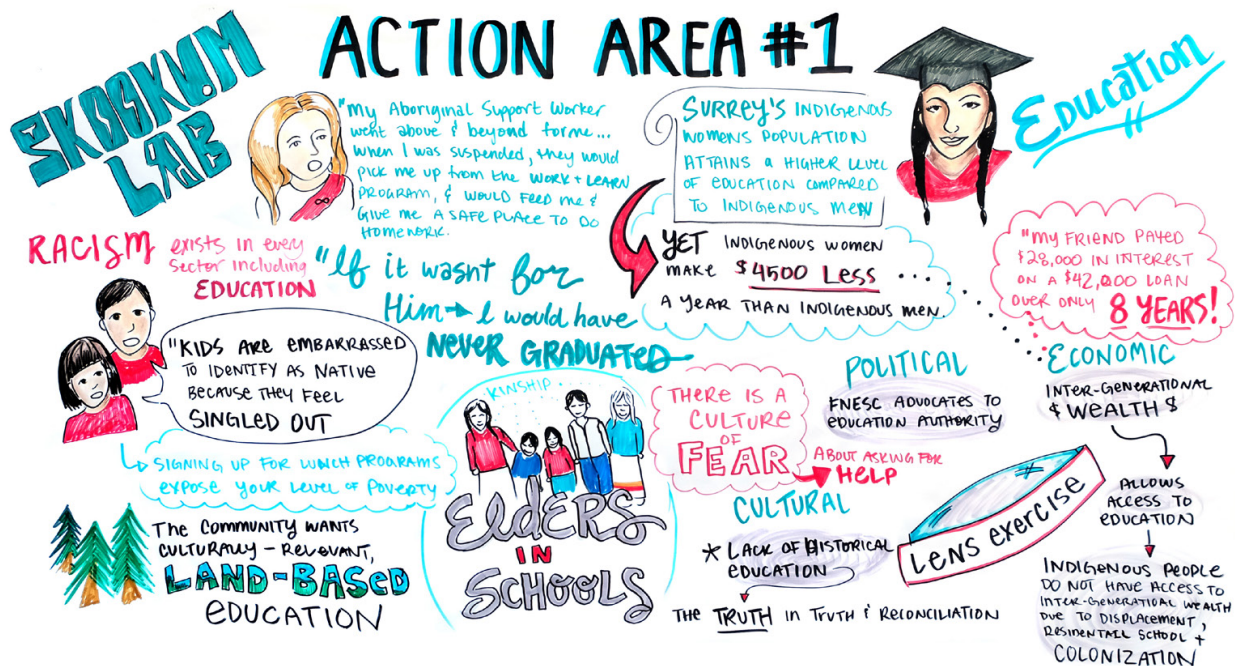 SKOOKUM
LAB
ACTION AREA #1
Education
"My Aboriginal Support Worker
went above & beyond for me...
when I was suspended, they would
pick me up from the WORK + LEARN
PROGRAM, & WOULD FEED ME &
GIVE ME A SAFE PLACE TO DO
HOMEWORK.
"If it wasnt for
Him → I would have
NEVER GRADUATED
SURREY'S INDIGENOUS
WOMENS POPULATION
ATTAINS A HIGHER LEVEL
OF EDUCATION COMPARED
TO INDIGENOUS MEN
YET INDIGENOUS WOMEN
MAKE $4500 LESS
A YEAR THAN INDIGENOUS MEN.
"MY FRIEND PAYED
$28,000 IN INTEREST
ON A $42,000 LOAN
OVER ONLY
8 YEARS!
RACISM exists in every
sector including
EDUCATION
"KIDS ARE EMBARRASSED
TO IDENTIFY AS NATIVE
BECAUSE THEY FEEL
SINGLED OUT
SIGNING UP FOR LUNCH PROGRAMS
EXPOSE YOUR LEVEL OF POVERTY
THE COMMUNITY WANTS
CULTURALLY-RELEVANT,
LAND-BASED
EDUCATION
KINSHIP
ELDERS
IN
SCHOOLS
THERE IS A
CULTURE
OF
FEAR
ABOUT ASKING FOR
HELP
POLITICAL
FNESC ADVOCATES TO
EDUCATION AUTHORITY
CULTURAL
* LACK OF HISTORICAL
EDUCATION
THE TRUTH in TRUTH & RECONCILIATION
LENS EXERCISE
ECONOMIC
INTER-GENERATIONAL
$ WEALTH $
ALLOWS
ACCESS TO
EDUCATION
INDIGENOUS PEOPLE
DO NOT HAVE ACCESS TO
INTER-GENERATIONAL WEALTH
DUE TO DISPLACEMENT,
RESIDENTAIL SCHOOL +
COLONIZATION